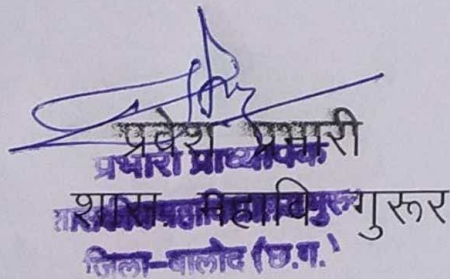 प्रवेश प्रभारी
प्रभारी प्राध्यापक
शास महावि गुरूर
जिला-बालोद (छ.ग.)